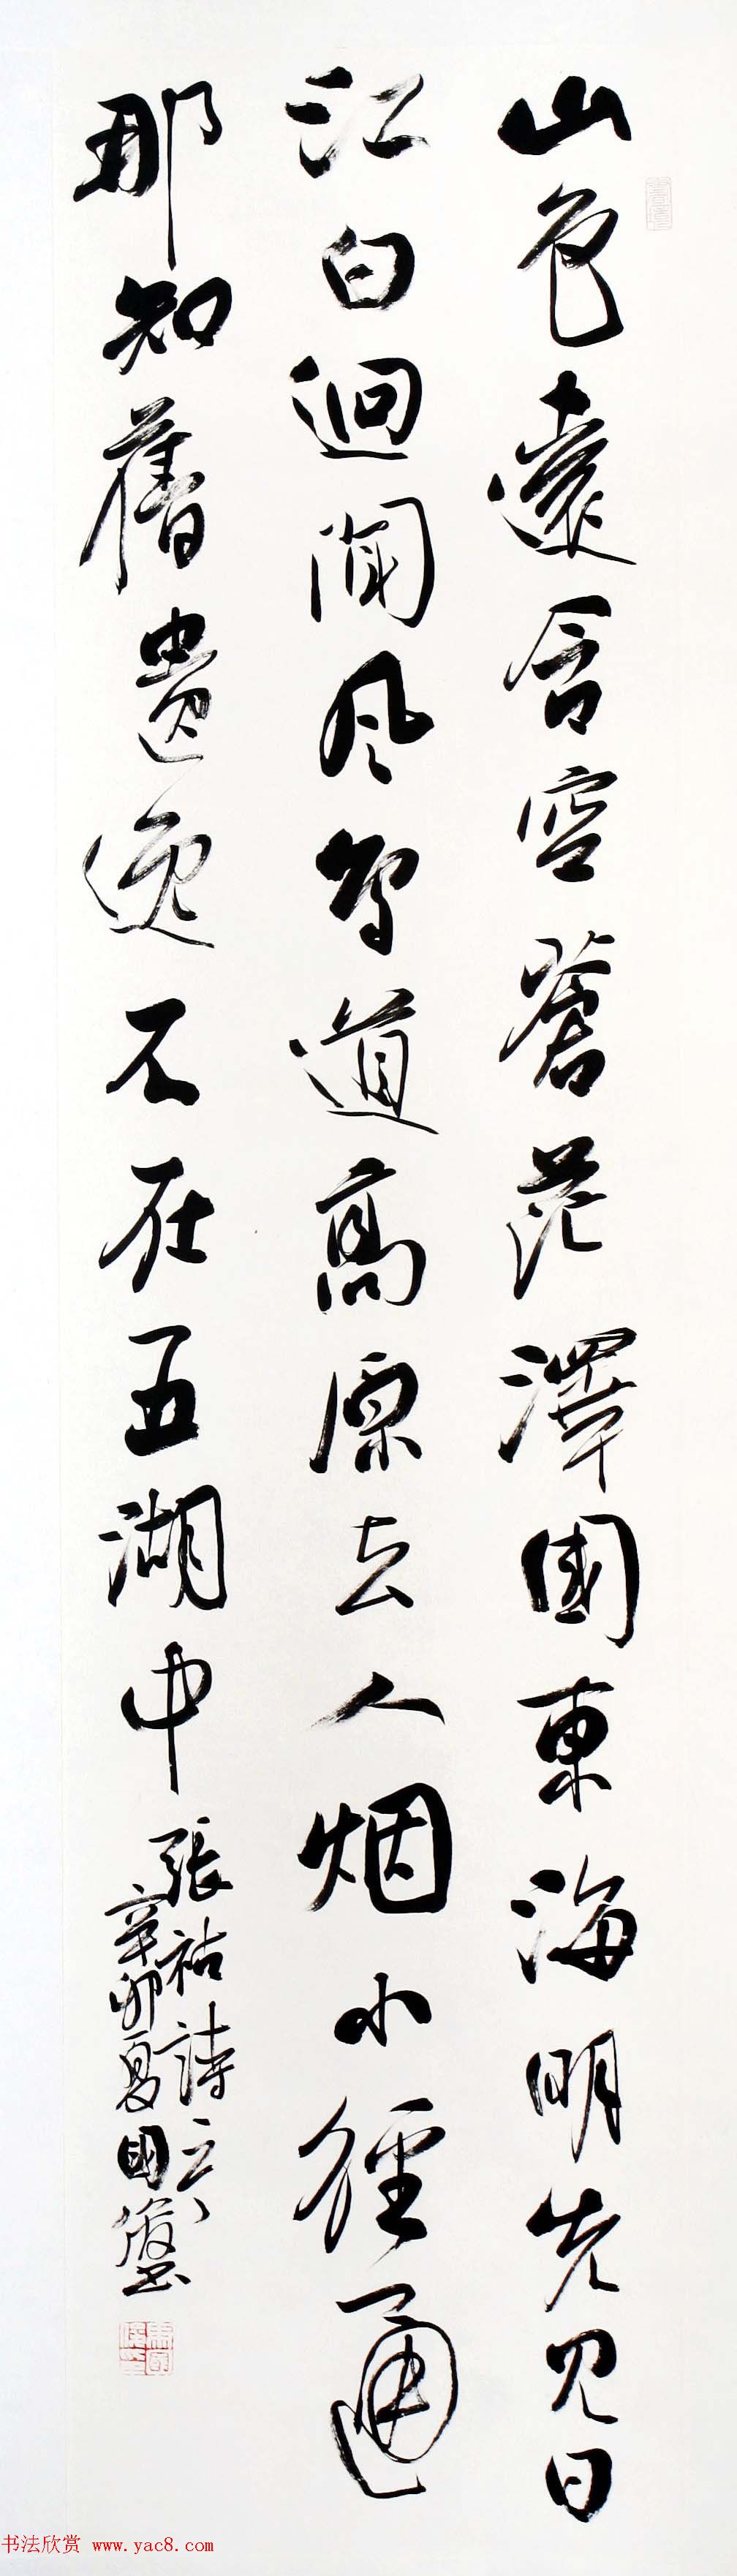 山色遠含空蒼茫澤國東海明先見日
江白迥聞風鳥道高原去人烟小徑通
那知舊遺逸不在五湖中
張祜詩
辛卯夏國俊書
书法欣赏 www.yac8.com